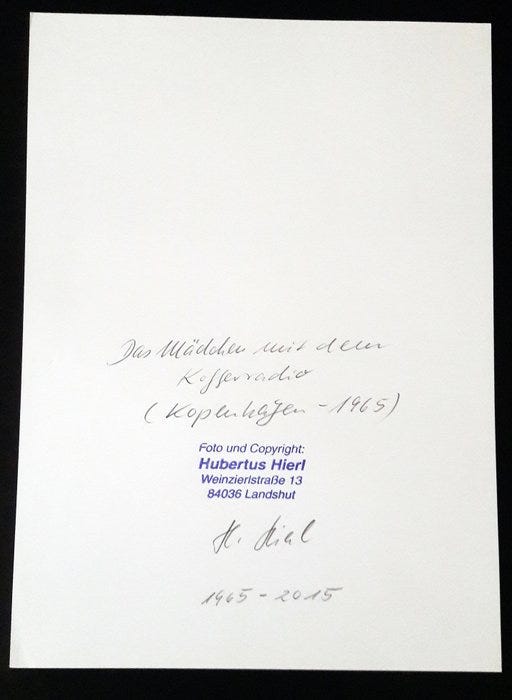 Das Mädchen mit dem
Kofferradio
(Kopenhagen - 1965)
Foto und Copyright:
Hubertus Hierl
Weinzierlstraße 13
84036 Landshut
H. Hierl
1965 - 2015